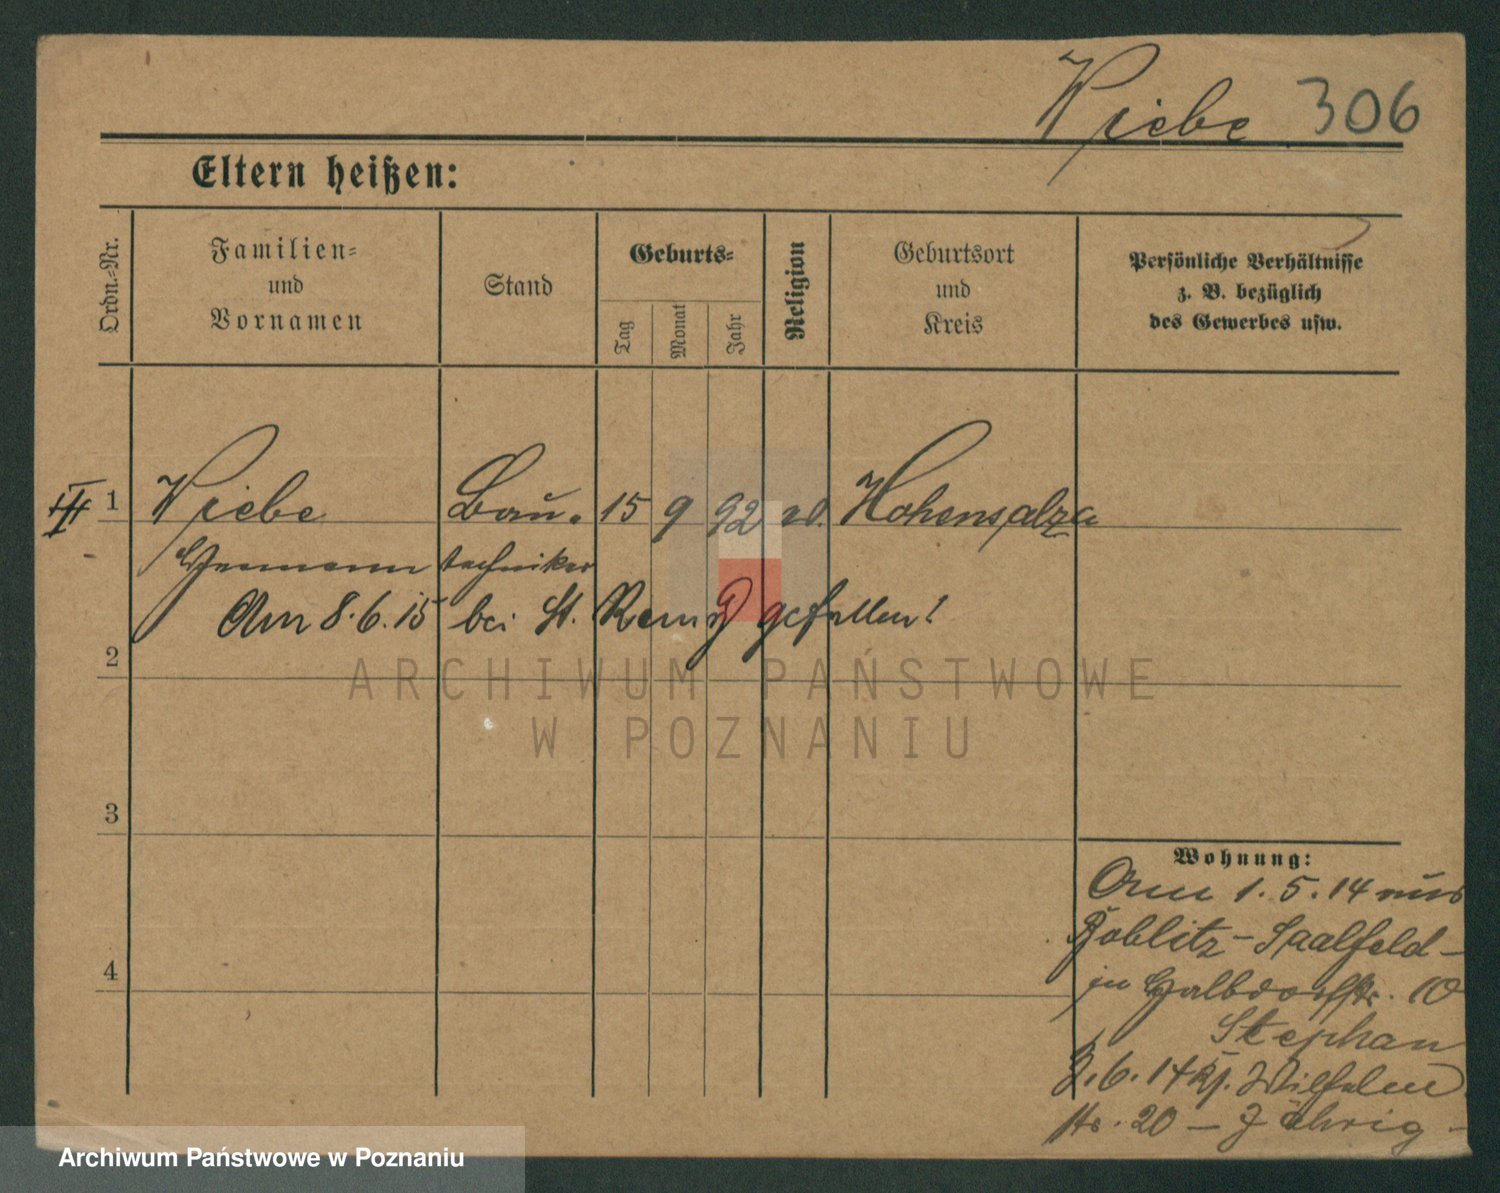 Wiebe 306
Eltern heißen:
Ordn.-Nr.
Familien-
und
Vornamen
Stand
Geburts-
Tag
Monat
Jahr
Religion
Geburtsort
und
Kreis
Persönliche Verhältnisse
z. B. bezüglich
des Gewerbes usw.
III 1 Wiebe Bau- 15 9 92 ev. Hohensalza
Hermann techniker
Am 8.6.15 bei St. Remy gefallen!
2
ARCHIWUM PAŃSTWOWE
W POZNANIU
3
4
Wohnung:
Am 1.5.14 aus
Köblitz-Saalfeld-
in Halbdorfstr. 10
Stephan
3.6.14 Wilhelm
str. 20 -
Archiwum Państwowe w Poznaniu